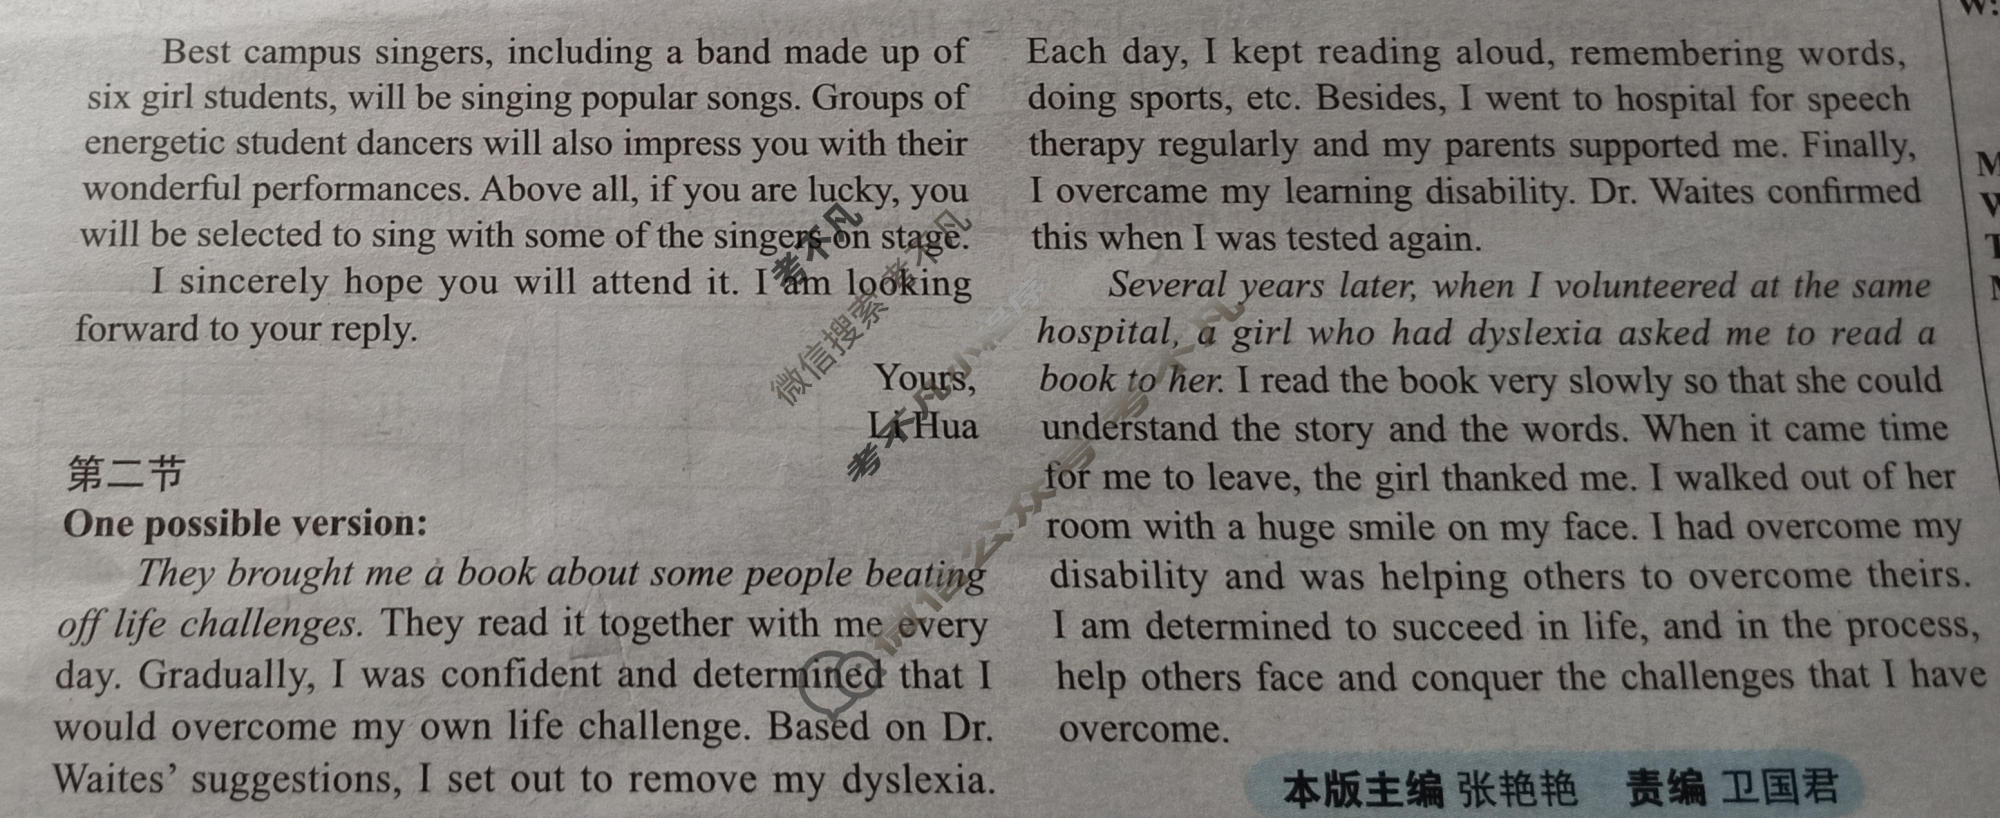 Best campus singers, including a band made up of
six girl students, will be singing popular songs. Groups of
energetic student dancers will also impress you with their
wonderful performances. Above all, if you are lucky, you
will be selected to sing with some of the singers on stage.
I sincerely hope you will attend it. I am looking
forward to your reply.
Yours,
Li Hua
第二节
One possible version:
They brought me a book about some people beating
off life challenges. They read it together with me every
day. Gradually, I was confident and determined that I
would overcome my own life challenge. Based on Dr.
Waites' suggestions, I set out to remove my dyslexia.
Each day, I kept reading aloud, remembering words,
doing sports, etc. Besides, I went to hospital for speech
therapy regularly and my parents supported me. Finally,
I overcame my learning disability. Dr. Waites confirmed
this when I was tested again.
Several years later, when I volunteered at the same
hospital, a girl who had dyslexia asked me to read a
book to her. I read the book very slowly so that she could
understand the story and the words. When it came time
for me to leave, the girl thanked me. I walked out of her
room with a huge smile on my face. I had overcome my
disability and was helping others to overcome theirs.
I am determined to succeed in life, and in the process,
help others face and conquer the challenges that I have
overcome.
本版主编 张艳艳 责编 卫国君
考不凡
微信搜索 考不凡
考不凡小程序
微信公众号 考不凡